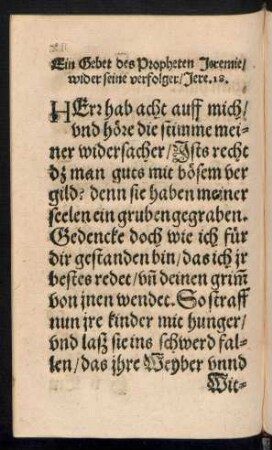 Ein Gebet des Propheten Jeremie/
wider seine verfolger/Jere.18.
HErꝛ hab acht auff mich/
vnd höꝛe die stimme mei-
ner widersacher/Ists recht
dz̄ man guts mit bösem ver
gild? denn sie haben meiner
seelen ein gruben gegraben.
Gedencke doch wie ich für
dir gestanden bin/das ich jr
bestes redet/vn̄ deinen grim̄
von jnen wendet. So straff
nun jre kinder mit hunger/
vnd laß sie ins schwerd fal-
len/das jhre Weyber vnnd
Wit-